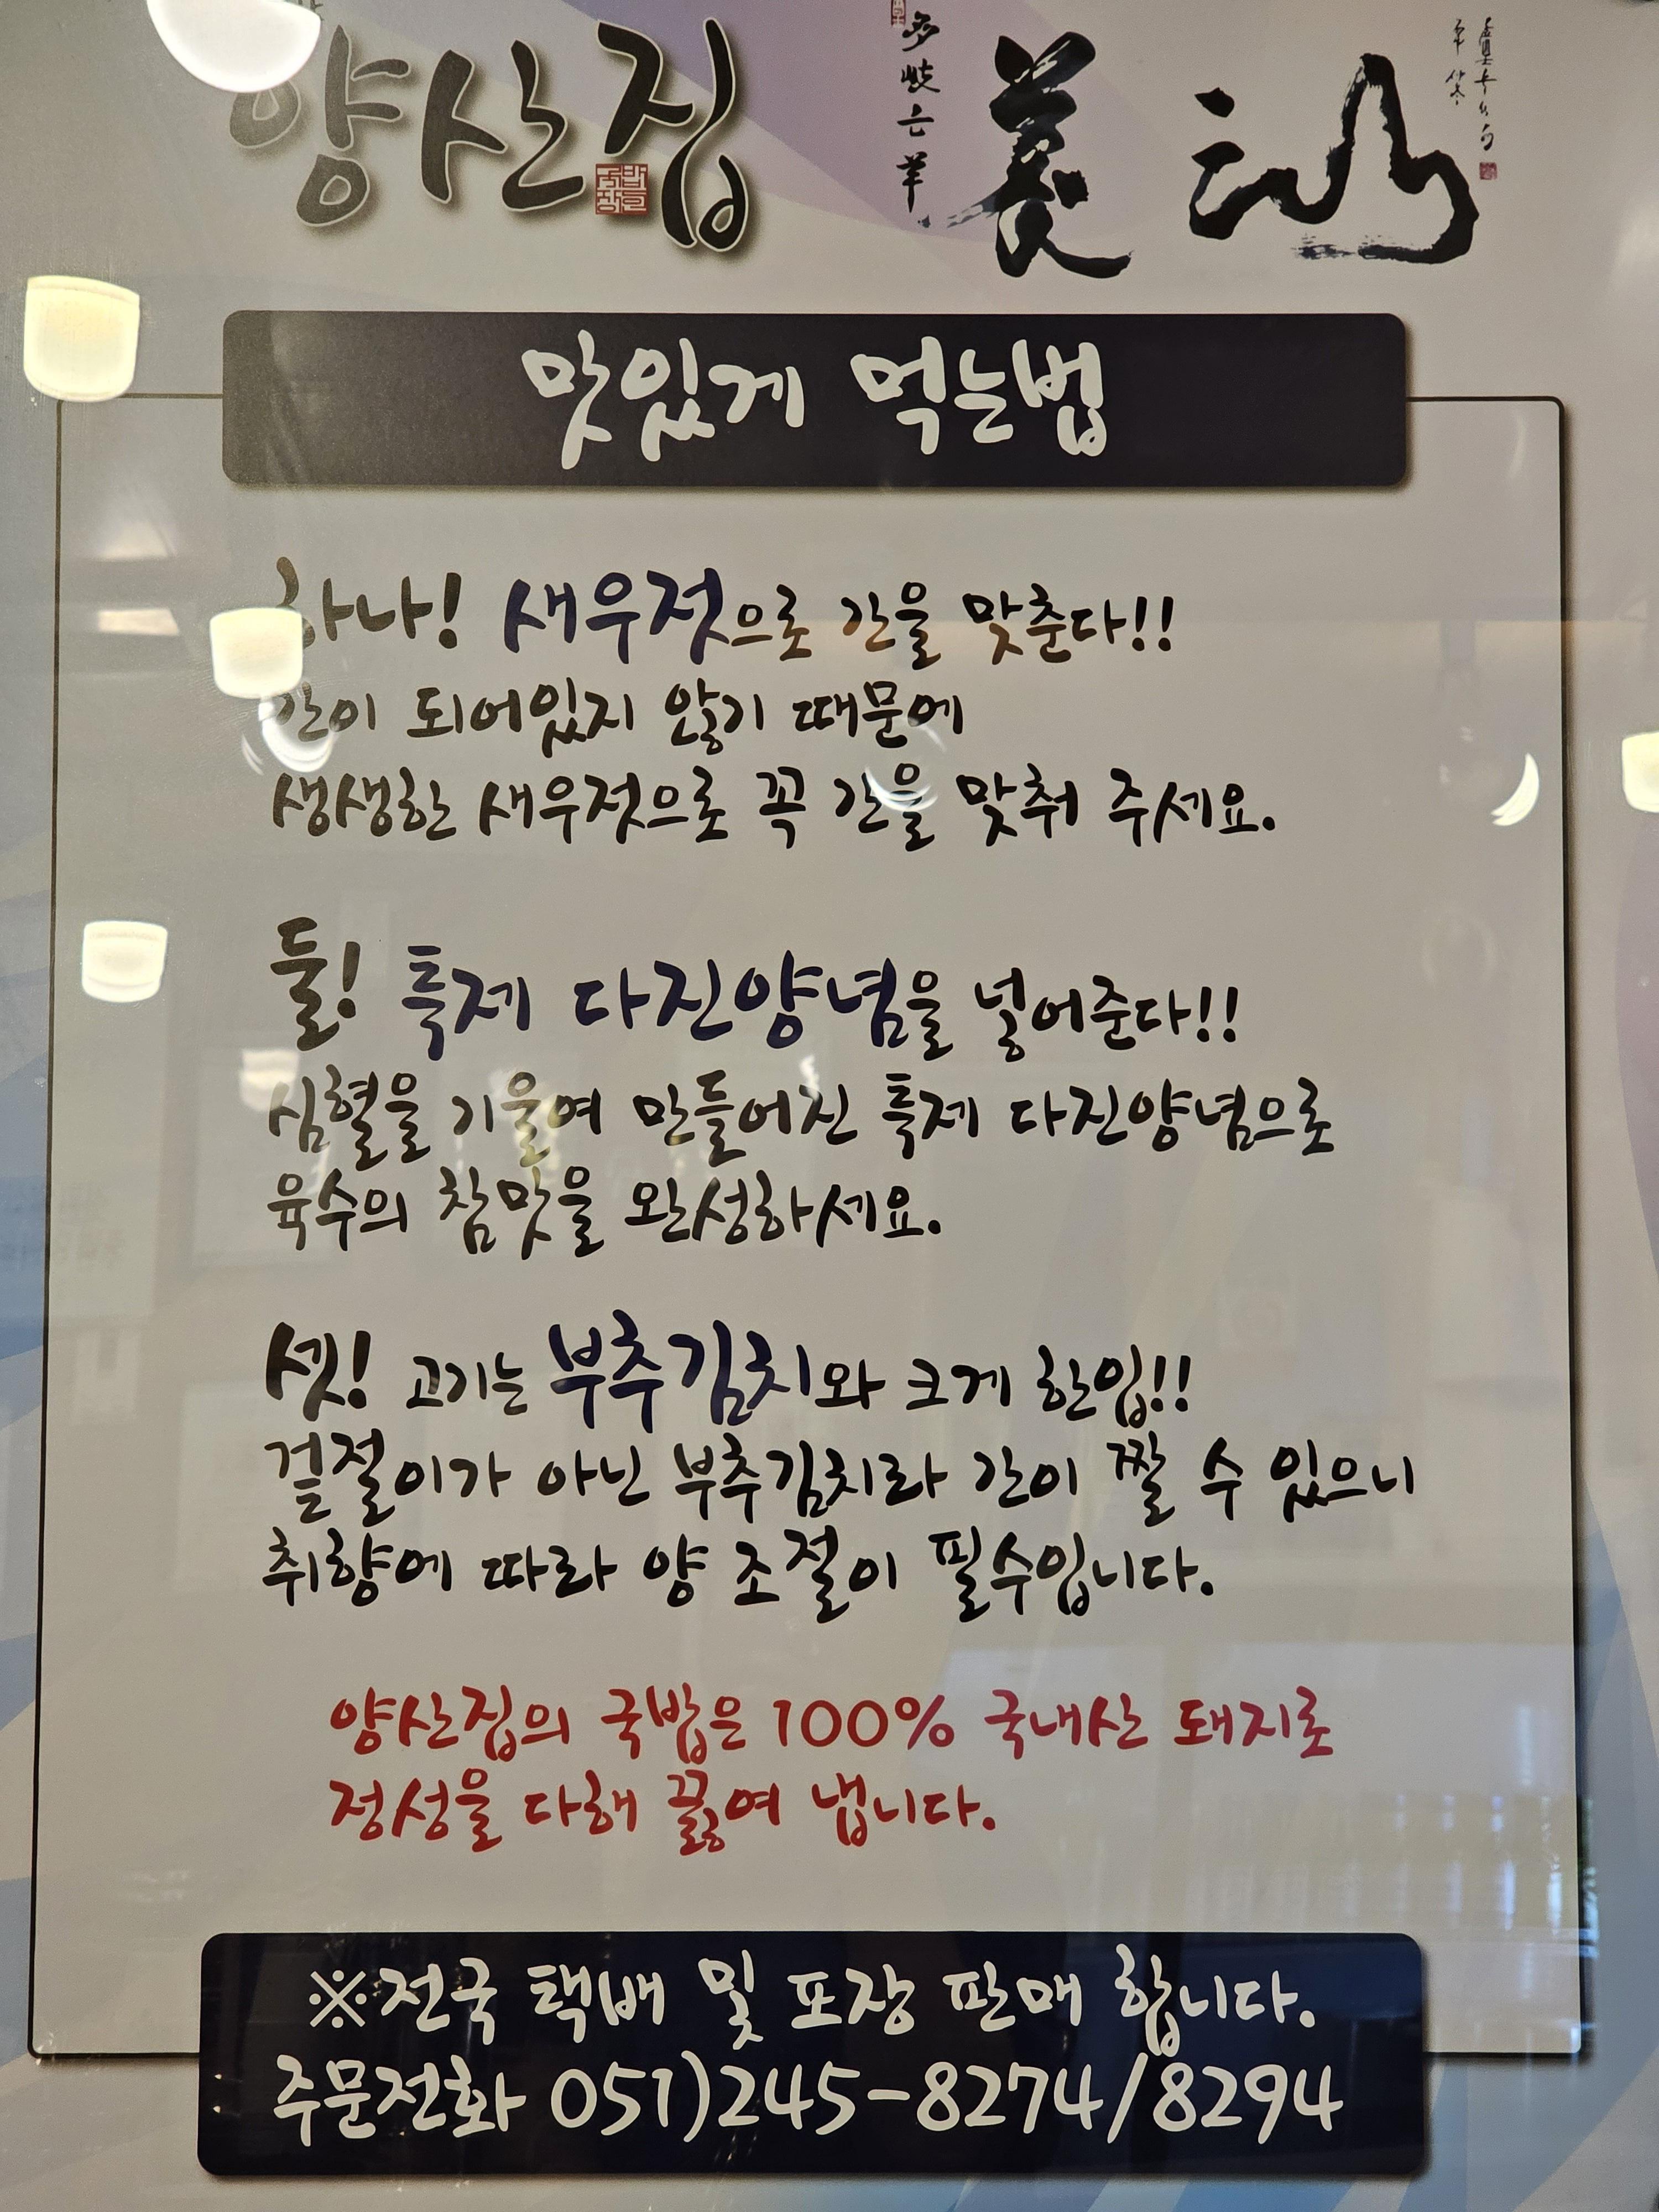 양산집
多岐亡羊
맛있게 먹는법
하나! 새우젓으로 간을 맞춘다!!
간이 되어있지 않기 때문에
생생한 새우젓으로 꼭 간을 맞춰 주세요.
둘! 특제 다진양념을 넣어준다!!
심혈을 기울여 만들어진 특제 다진양념으로
육수의 참맛을 완성하세요.
셋! 고기는 부추김치와 크게 한입!!
겉절이가 아닌 부추김치라 간이 짤 수 있으니
취향에 따라 양 조절이 필수입니다.
양산집의 국밥은 100% 국내산 돼지로
정성을 다해 끓여 냅니다.
※전국 택배 및 포장 판매 합니다.
주문전화 051)245-8274/8294